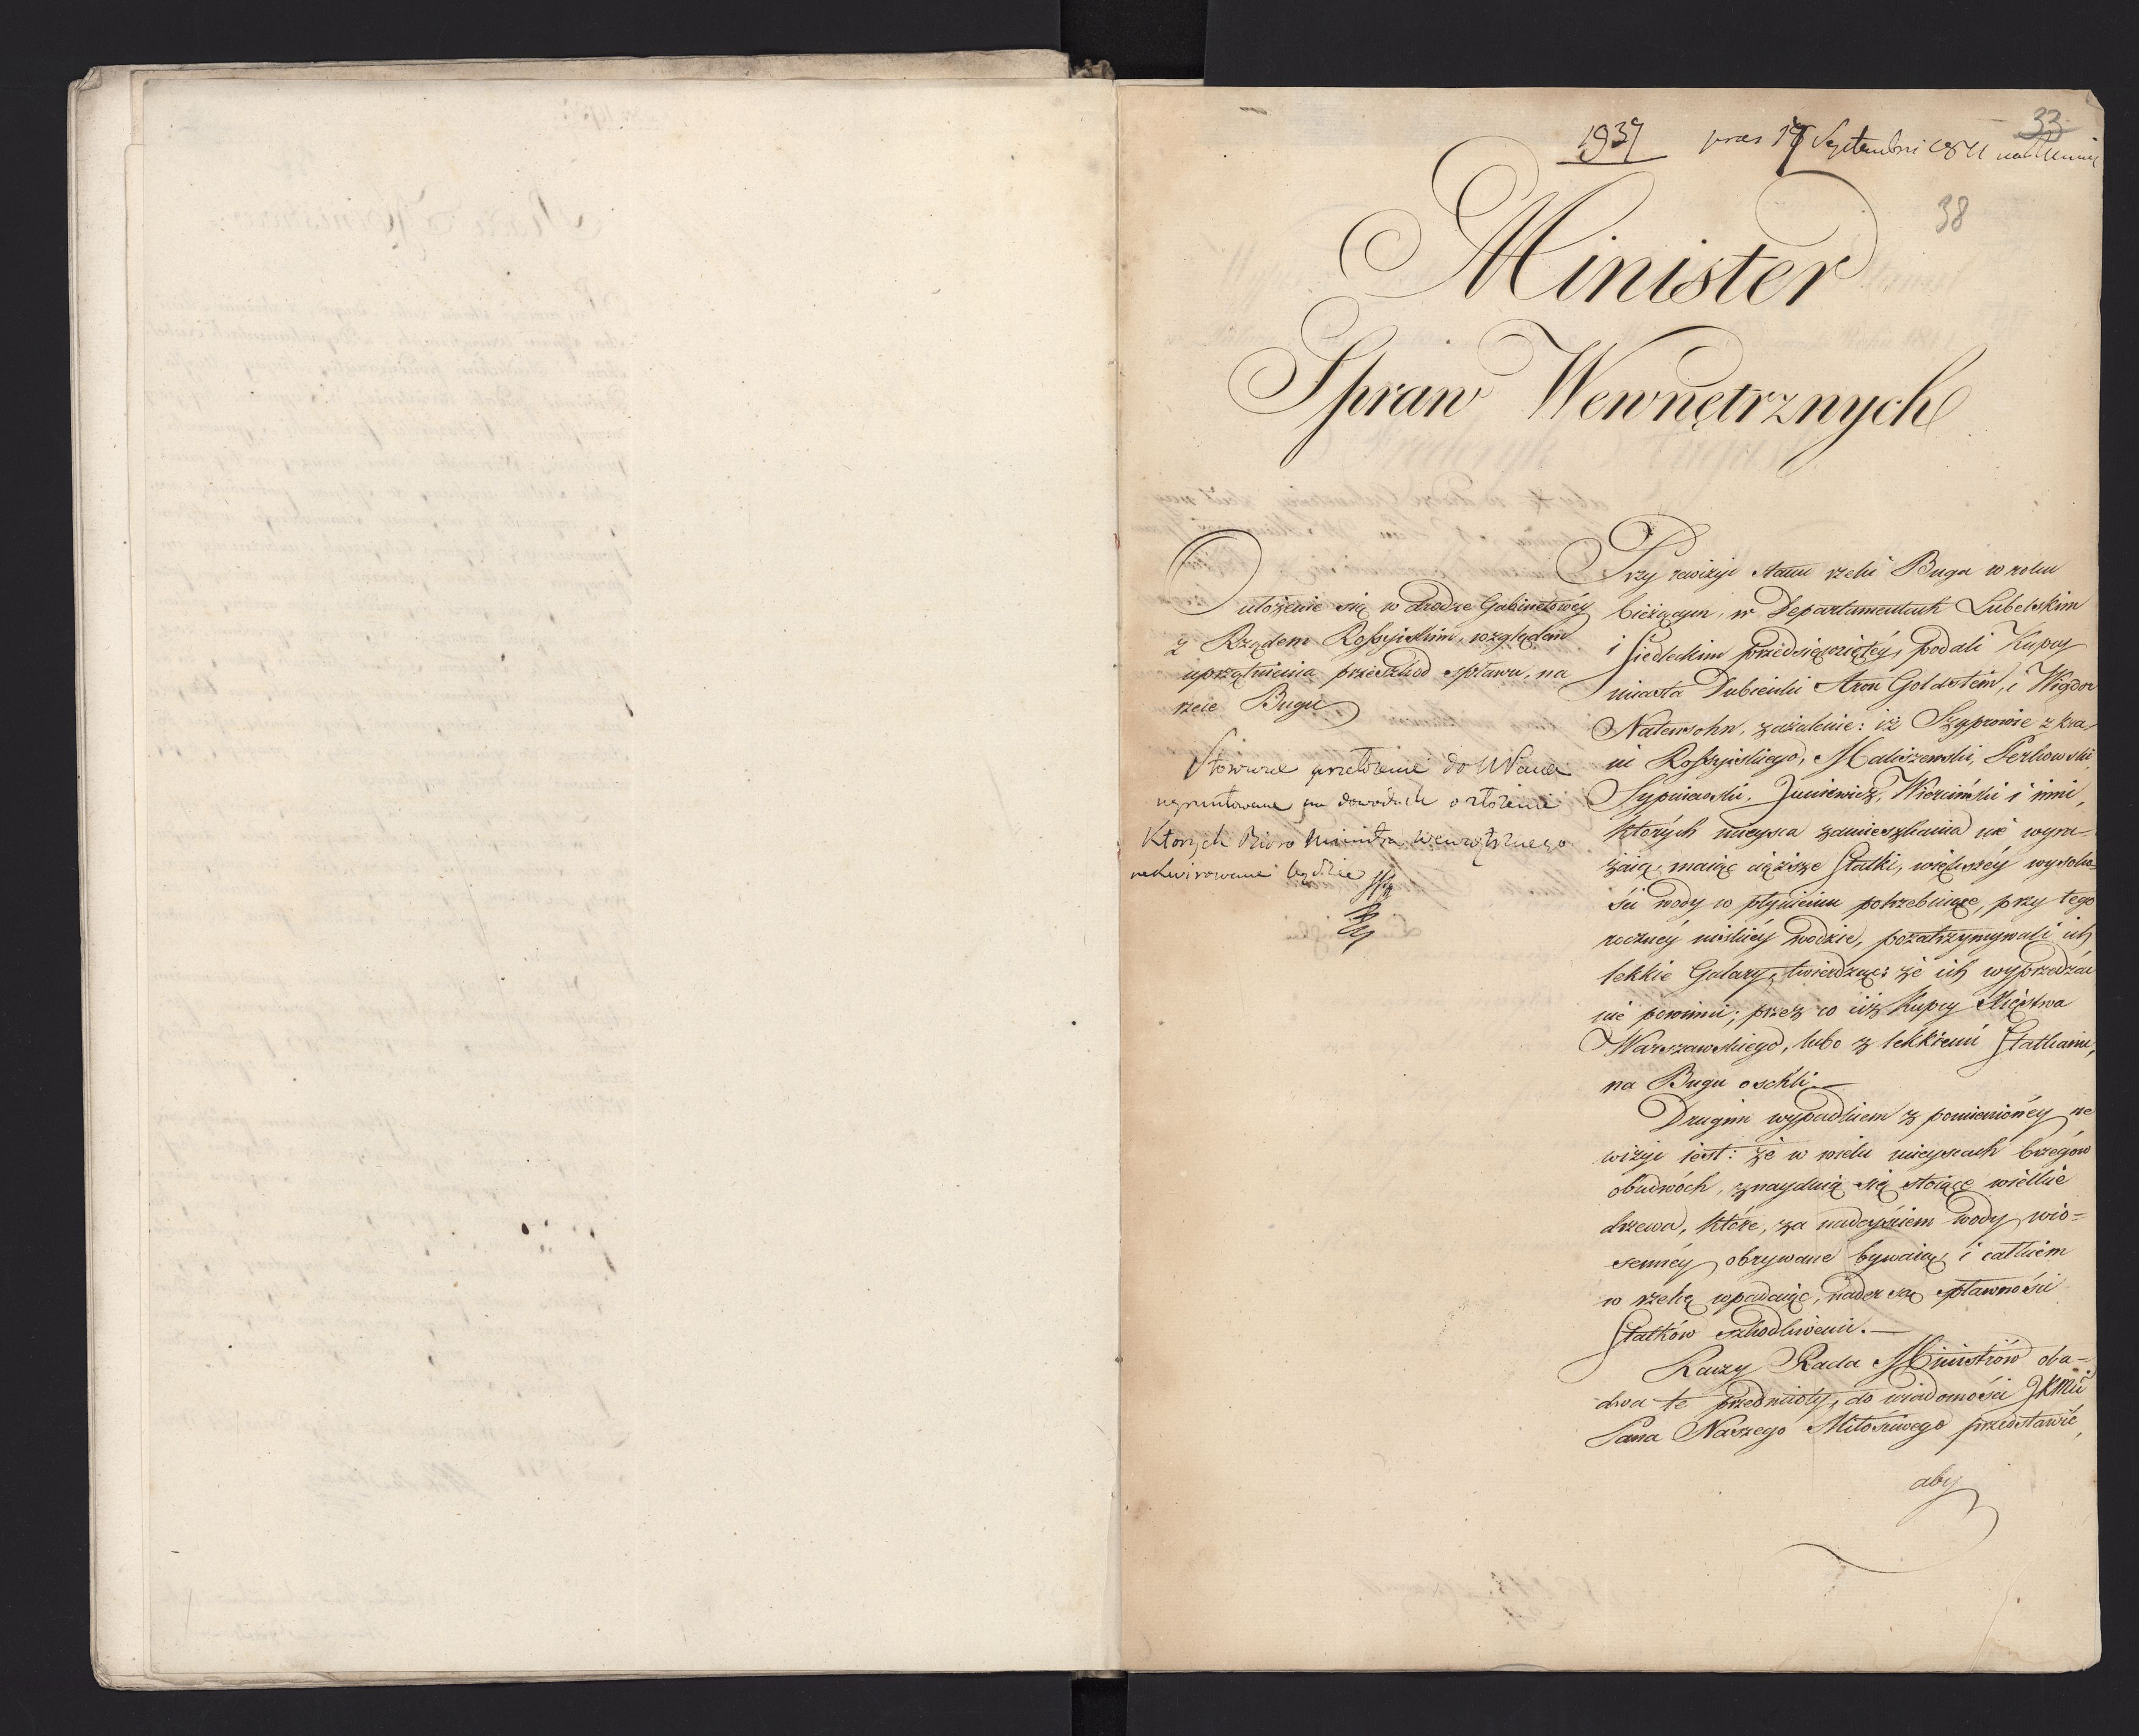 33
1937 pres 17 Septembri 1811
38
Minister
Spraw Wewnętrznych
O ułożenie się w drodze Gabinetowéy
z Rządem Rossyiskim, względem
uprzątnienia przeszkód spławu, na
rzece Bugu
Stosowne przełożenie do
ugruntowane na dowodach o złożenie
których Biuro Ministra Wewnętrznego
rekwirowane będzie
Przy rewizyi stanu rzeki Buga w roku
bieżącym, w Departamentach Lubelskim
i Siedleckim przedsięwziętéy, podali Kupcy
miasta Dubienki Aron Goldstein, i Wigdor
Natensohn, zażalenie: iż Szyprowie z kra-
iu Rossyiskiego, Maliszewski, Perkowski,
Sypniewski, Juniewicz, Wierciński i inni,
których mieysca zamieszkania nie wyra-
żaią, maiąc cięższe Statki, większéy wysoko-
ści wody w płynieniu potrzebuiące, przy tego
rocznéy niskiéy wodzie, pozatrzymywali ich
lekkie Galary, twierdząc: że ich wyprzedzać
nie powinni; przez co ciż Kupcy Xięstwa
Warszawskiego, lubo z lekkiemi Statkami,
na Bugu oschli.—
Drugim wypadkiem z pomienionéy re
wizyi iest: że w wielu mieyscach brzegów
obudwóch, znayduią się stoiące wielkie
drzewa, które, za nadeyściem wody wio=
sennéy obrywane bywaią, i całkiem
w rzekę wpadaiąc, nader są spławności
Statków szkodliwemi.—
Raczy Rada Ministrów oba-
dwa te przedmioty, do wiadomości JKMci
Pana Naszego Miłościwego przedstawić,
aby